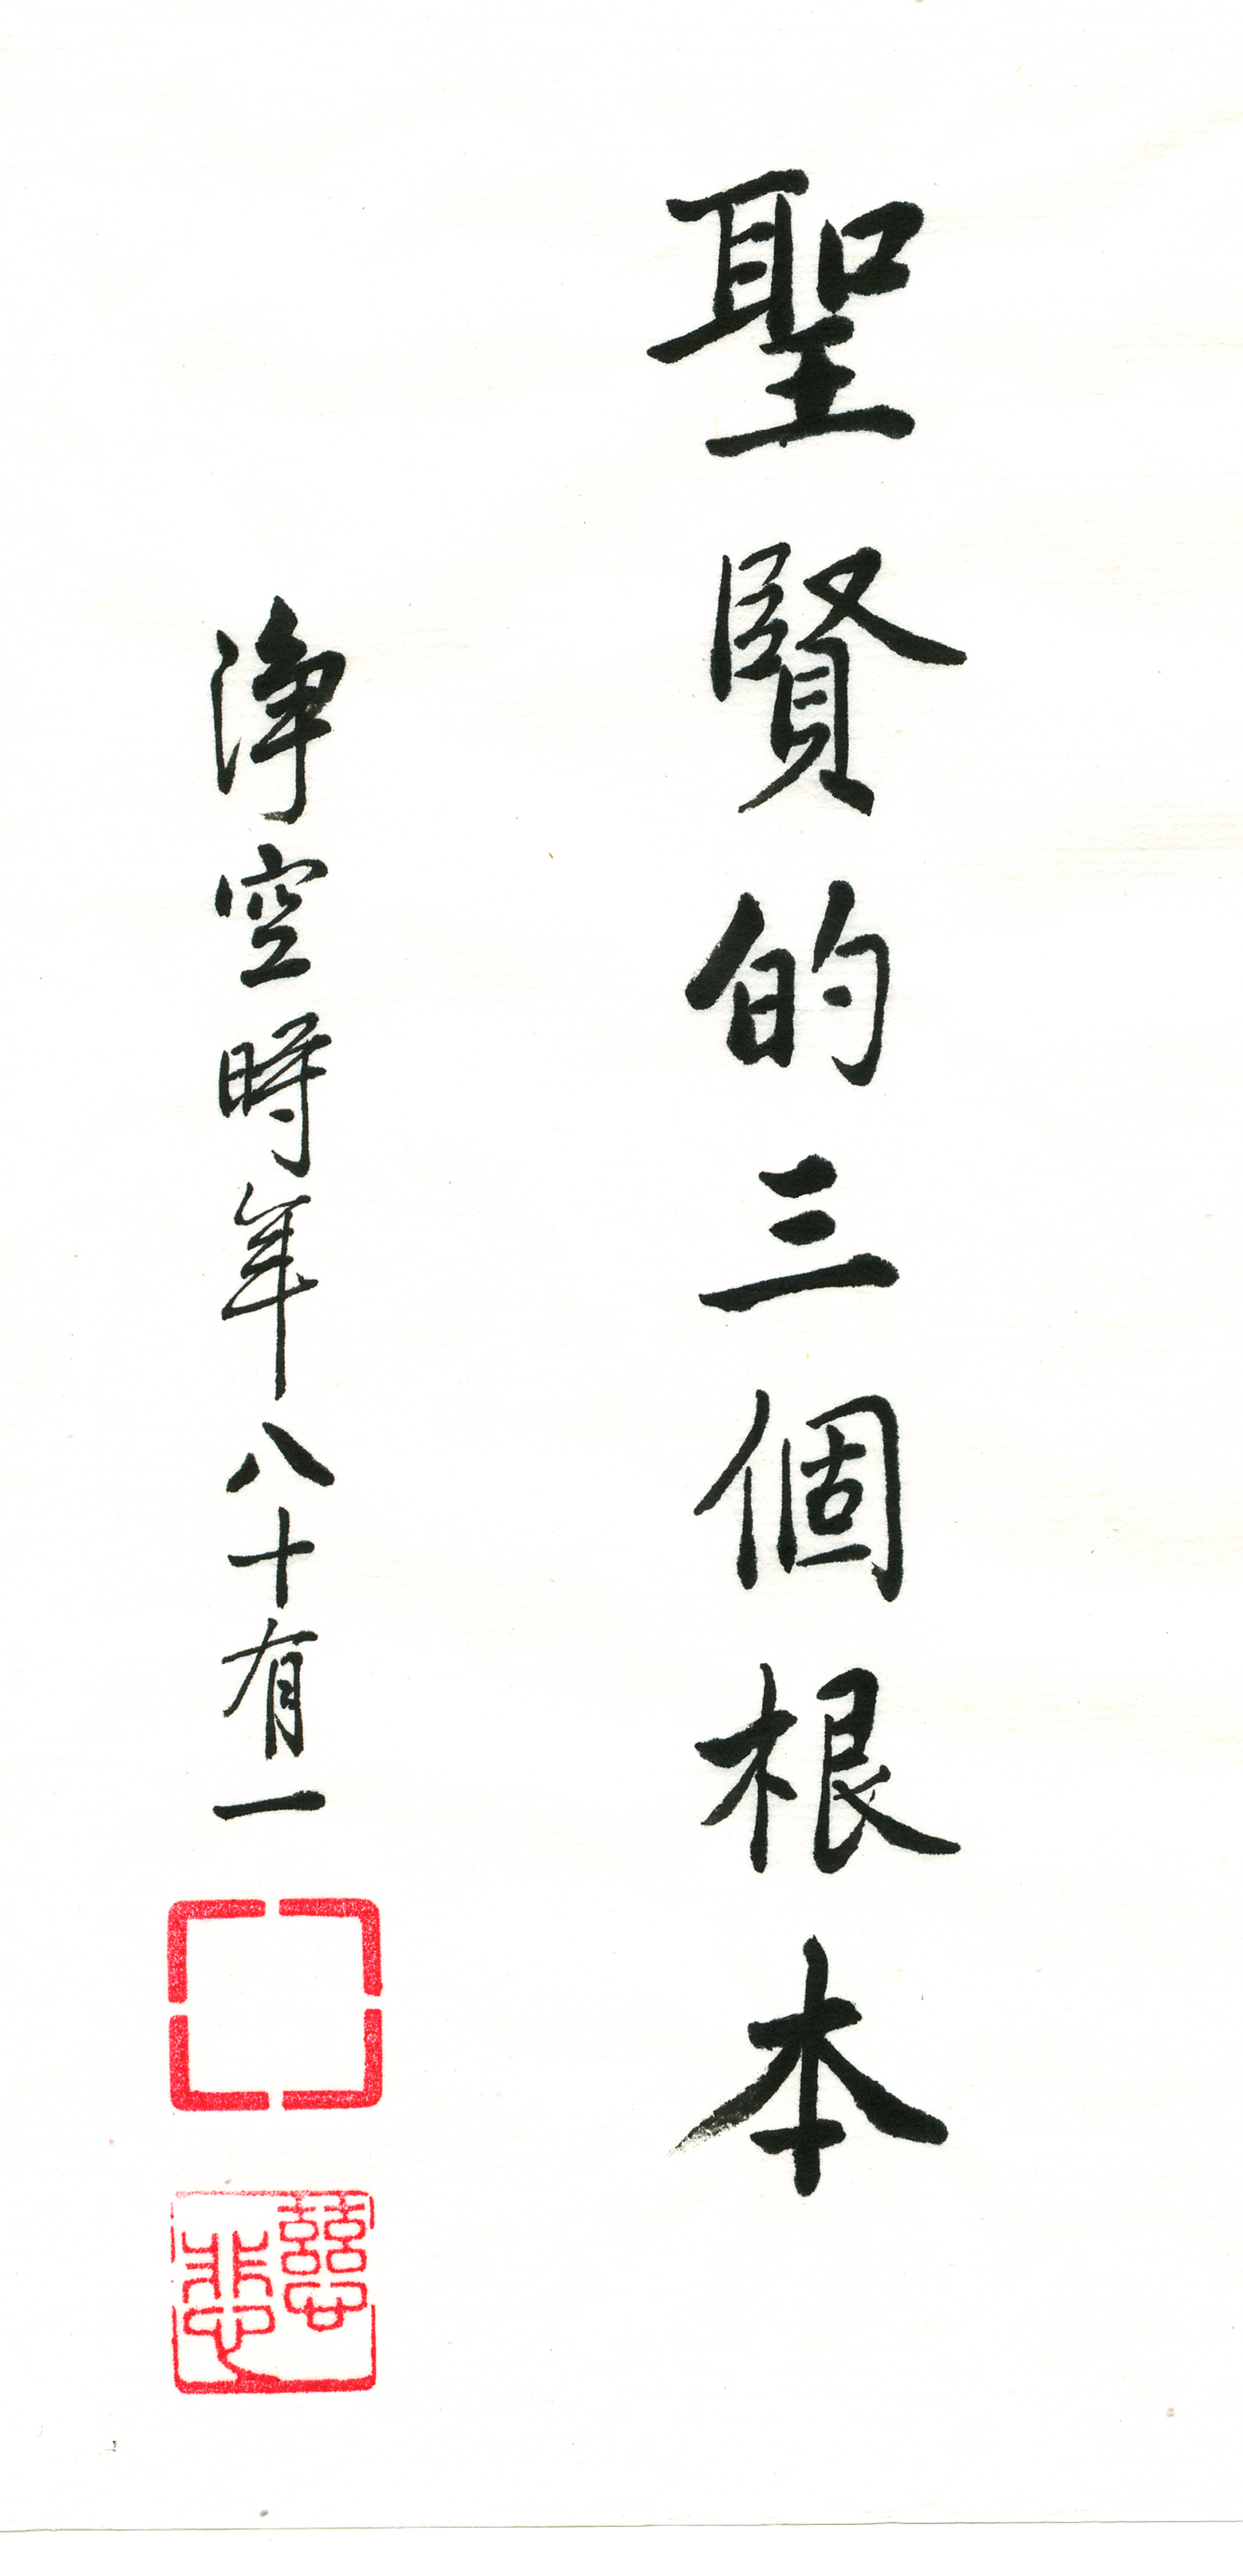 聖賢的三個根本
淨空時年八十有一
慈悲